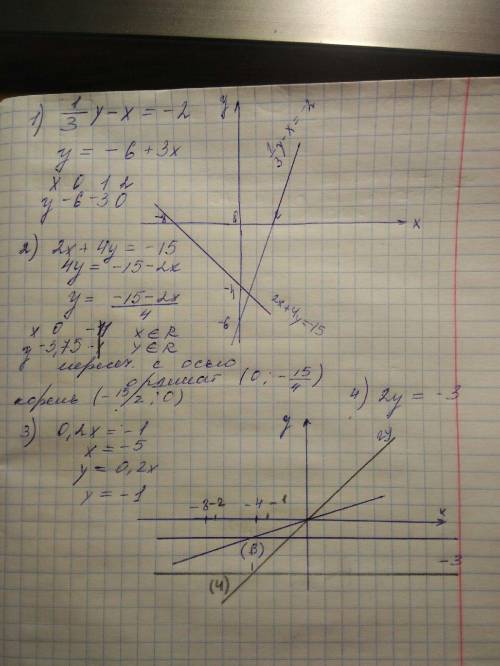 1) 1/3 y - x = -2
y = -6 + 3x
x 0 1 2
y -6 -3 0
2) 2x + 4y = -15
4y = -15 - 2x
y = (-15 - 2x)/4
x 0 x ∈ R
y -3,75 y ∈ R
пересеч. с осью
ординат (0; -15/4)
корень (-15/2; 0)
3) 0,2x = -1
x = -5
y = 0,2x
y = -1
y
x
-8
2
-4
-6
1/3 y - x = -2
2x+4y=-15
4) 2y = -3
y
2y
x
-3 -2 -4 -1
(3)
-3
(4)